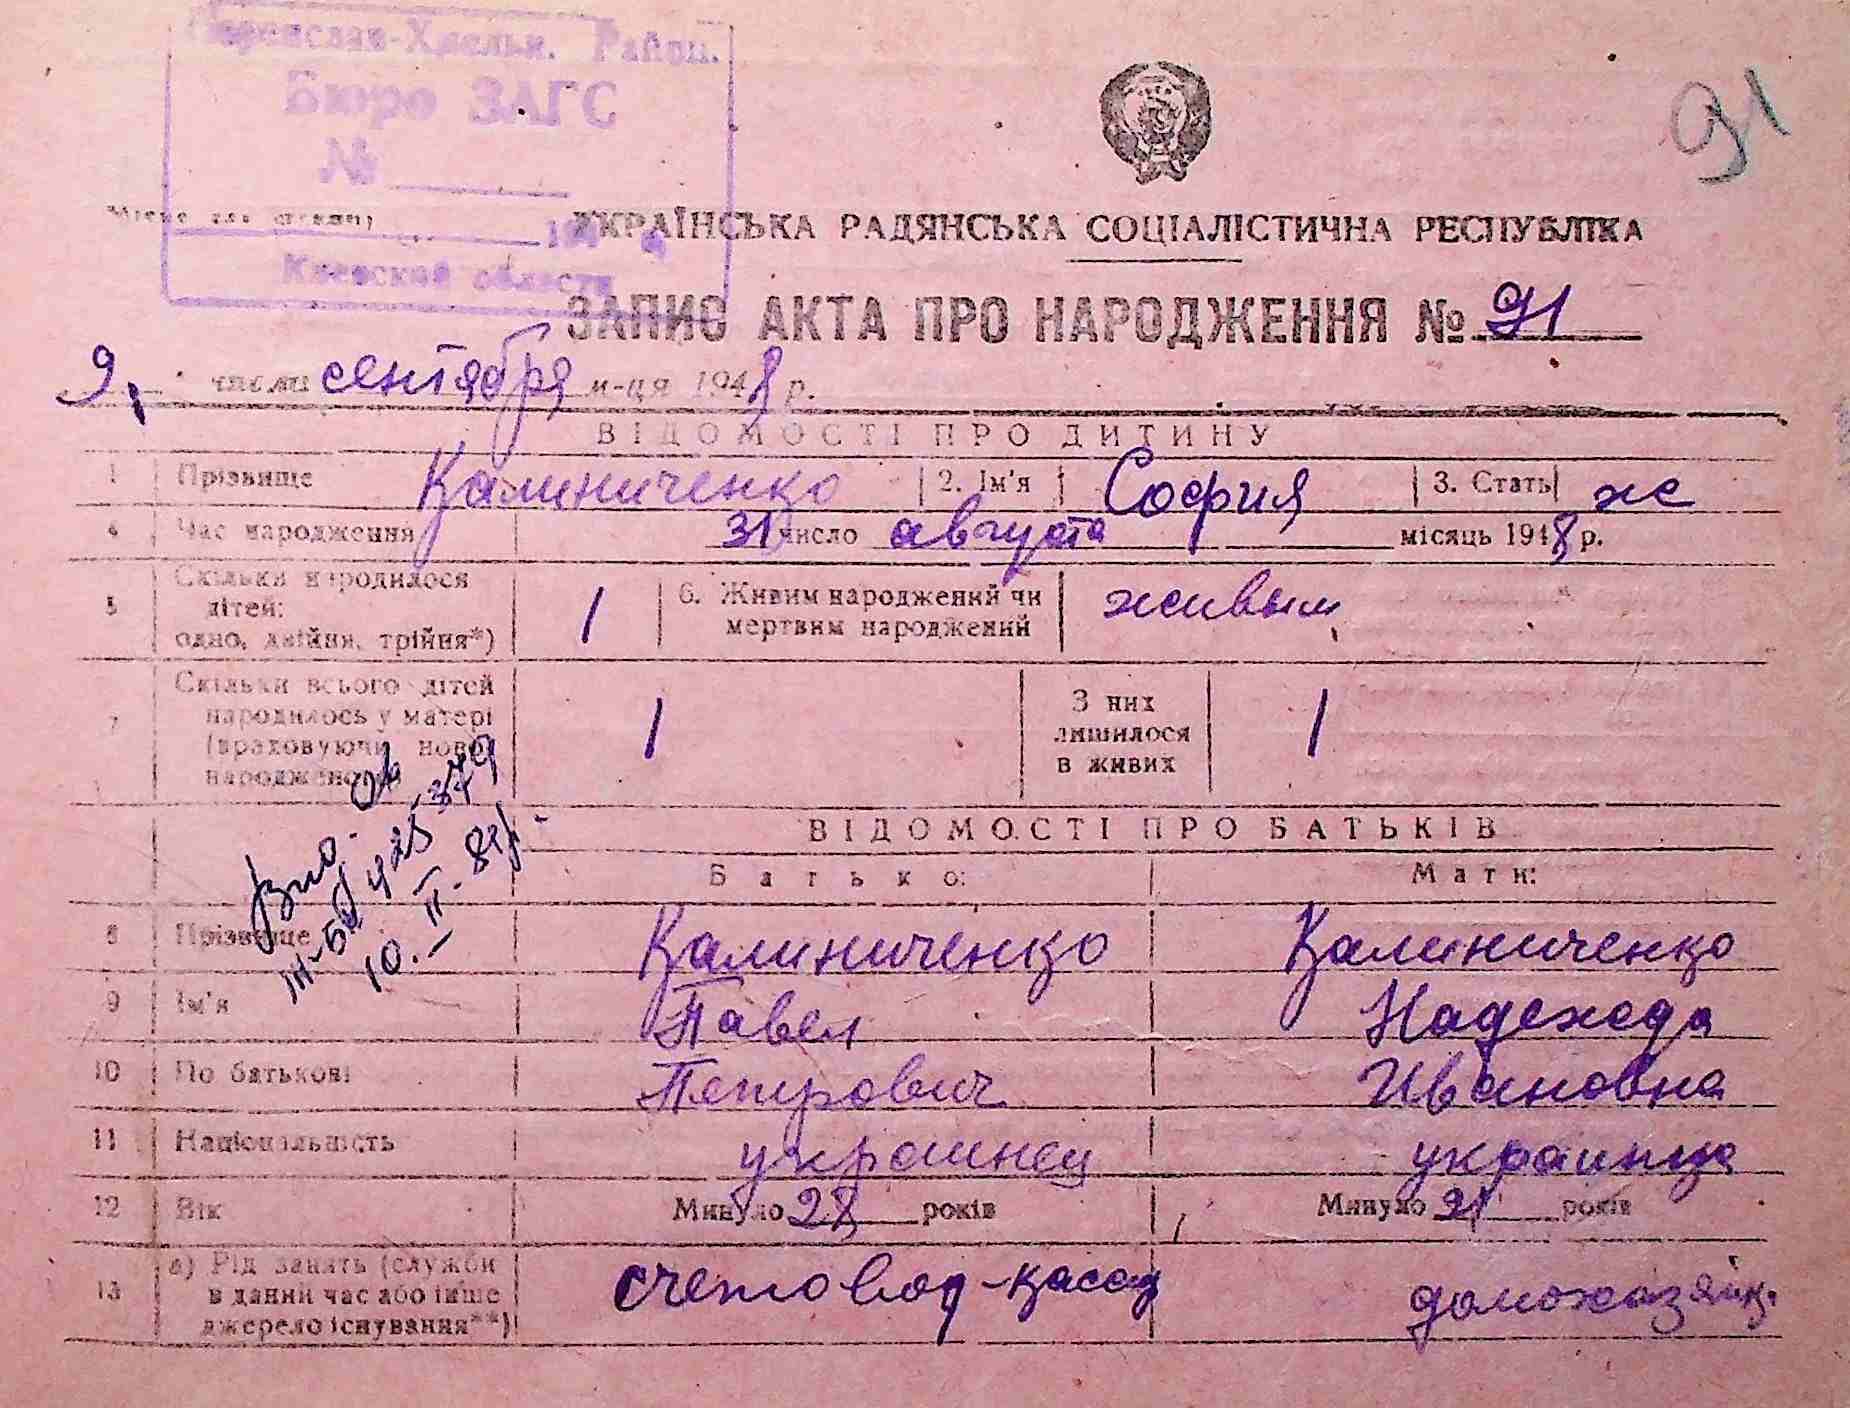 Переяслав-Хмельн. Район.
Бюро ЗАГС
№
91
194
Киевской области
УКРАЇНСЬКА РАДЯНСЬКА СОЦІАЛІСТИЧНА РЕСПУБЛІКА
ЗАПИС АКТА ПРО НАРОДЖЕННЯ № 91
9. числа сентября м-ця 1948 р.
ВІДОМОСТІ ПРО ДИТИНУ
1 Прізвище Калиниченко 2. Ім'я София 3. Стать ж
4 Час народження 31 число августа місяць 1948 р.
5 Скільки народилося дітей: одно, двійня, трійня*) 1 6. Живим народжений чи мертвим народжений живым
7 Скільки всього дітей народилось у матері (враховуючи ново- народженого) 1 З них лишилося в живих 1
ВІДОМОСТІ ПРО БАТЬКІВ
Батько: Мати:
8 Прізвище Калиниченко Калиниченко
9 Ім'я Павел Надежда
10 По батькові Петрович Ивановна
11 Національність украинец украинка
12 Вік Минуло 28 років Минуло 21 років
13 а) Рід занять (служби в даний час або інше джерело існування**) счетовод-касси домохозяйк.
10. II. 8